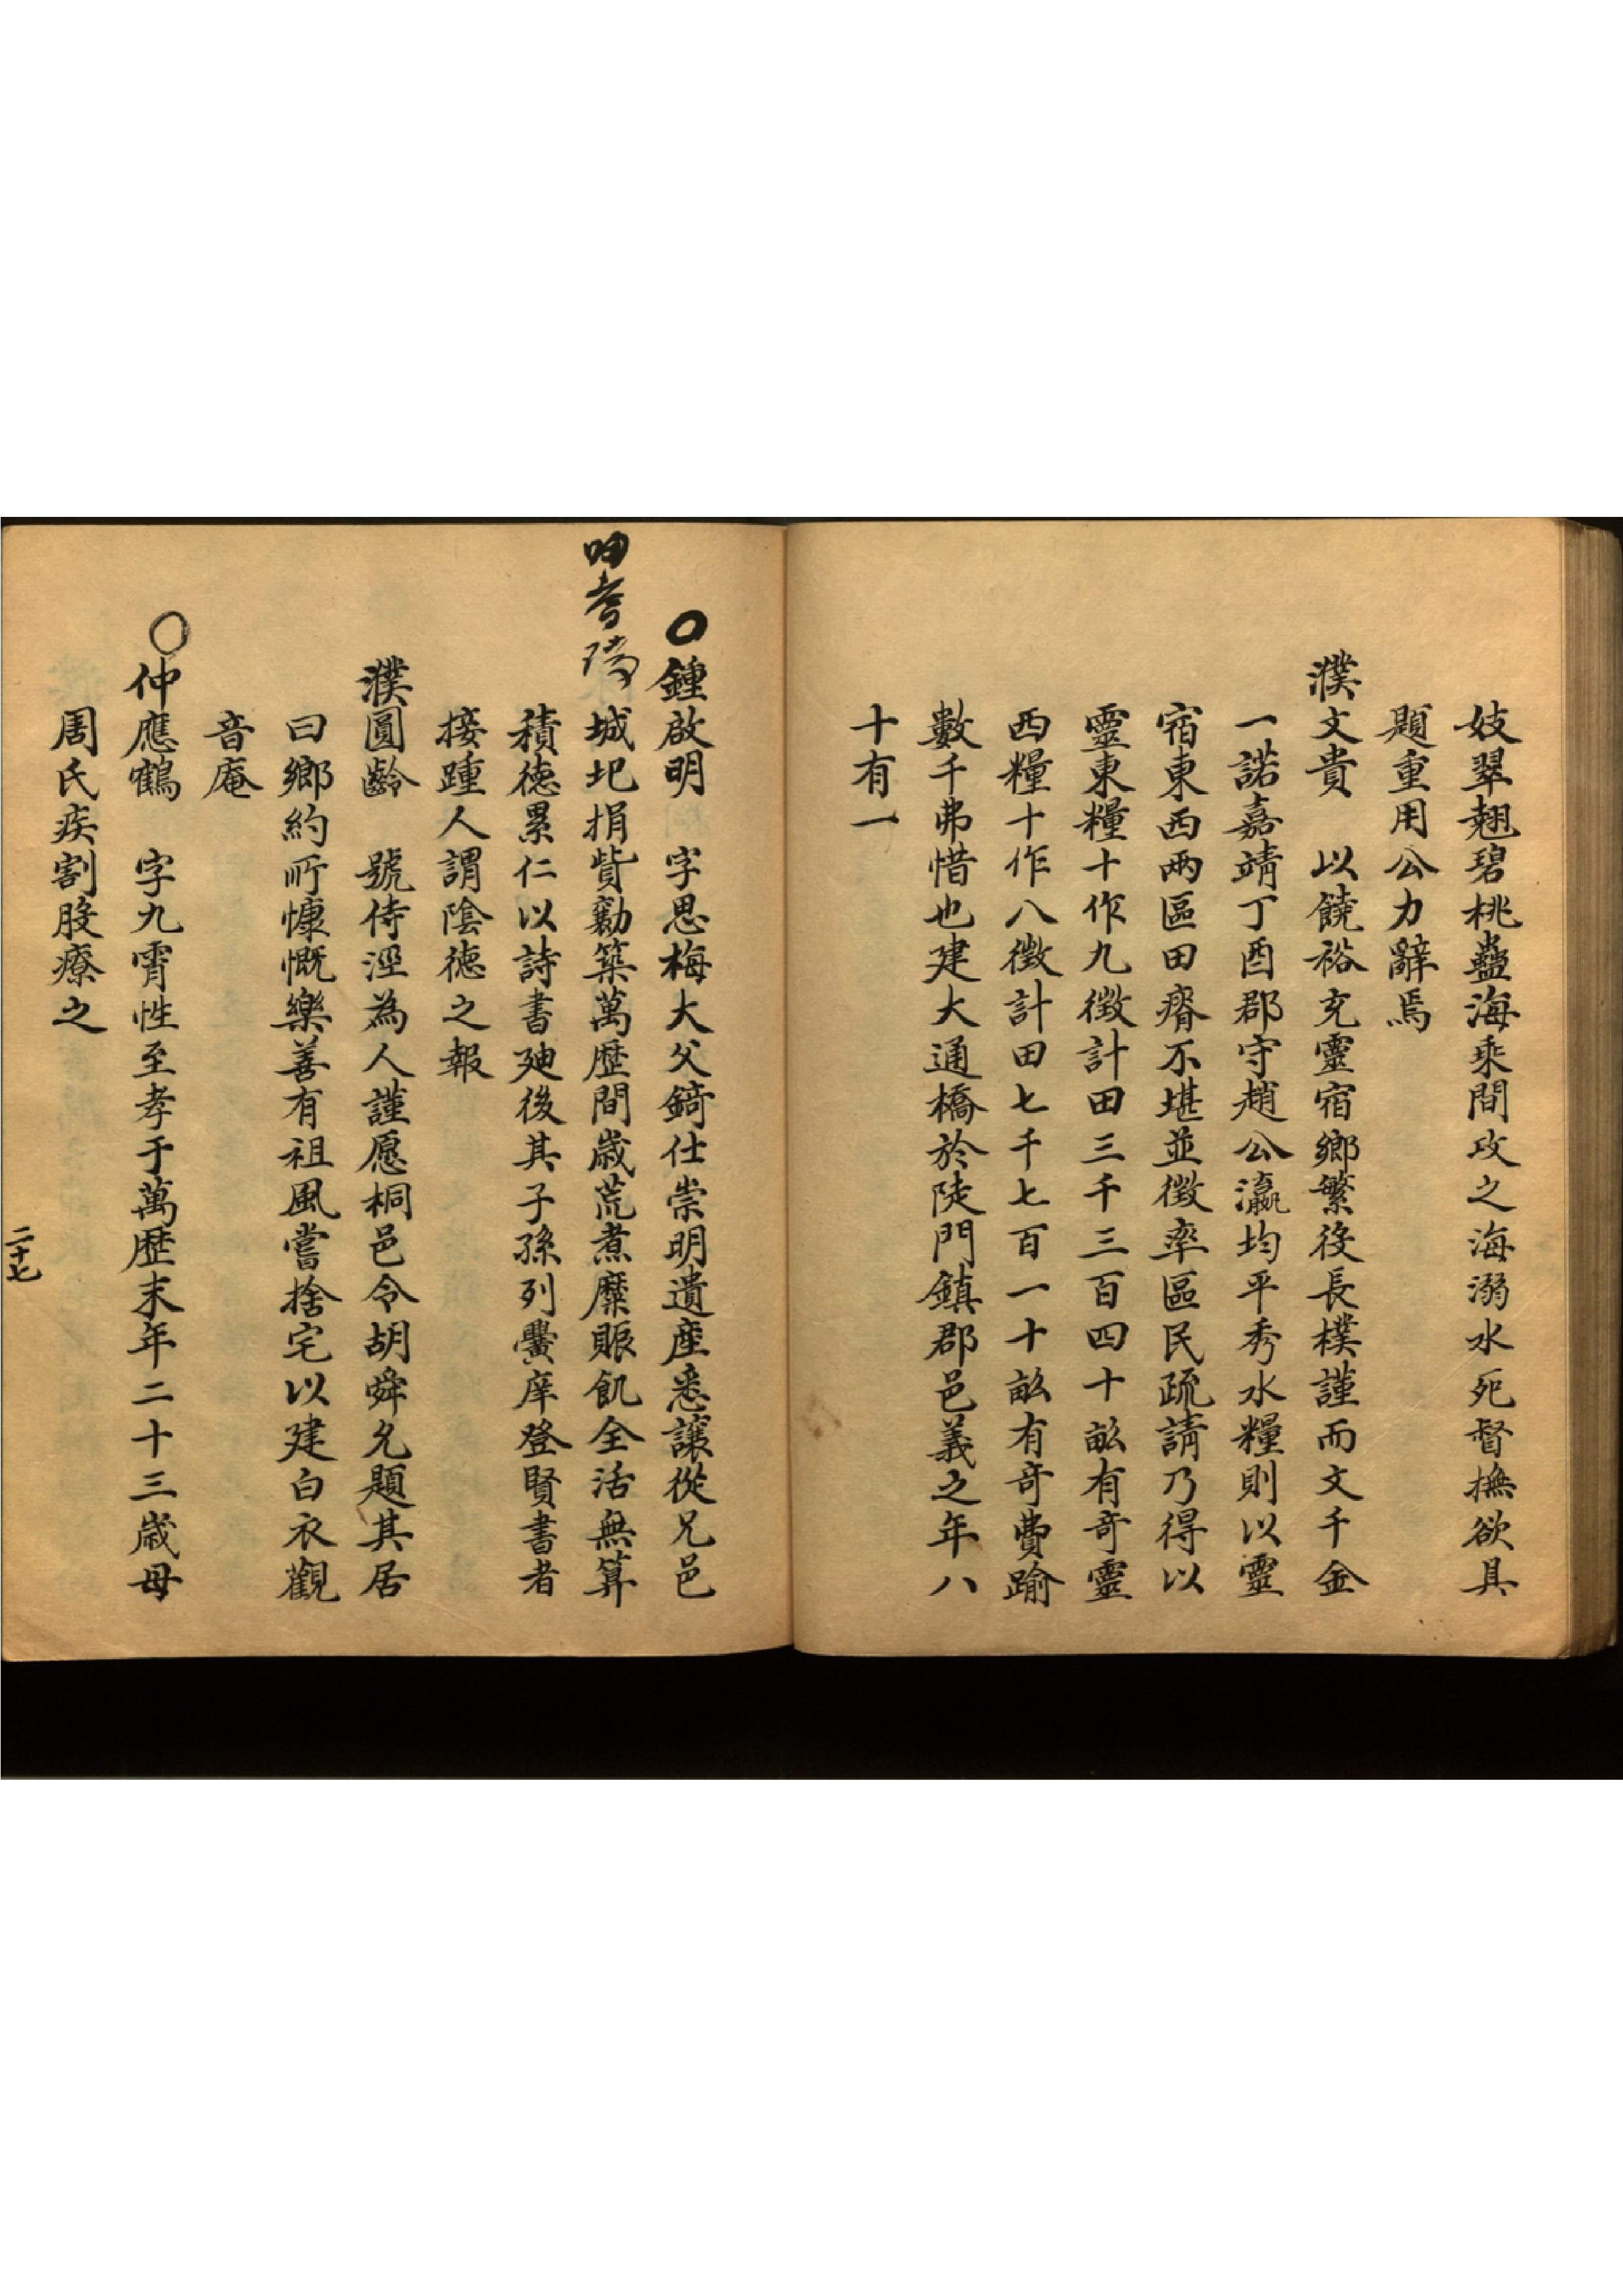 妓翠翹碧桃蠱海乘間攻之海溺水死督撫欲具
題重用公力辭焉
濮文貴　以饒裕充靈宿鄉繁役長樸謹而文千金
一諾嘉靖丁酉郡守趙公瀛均平秀水糧則以靈
宿東西兩區田瘠不堪並徵率區民疏請乃得以
靈東糧十作九徵計田三千三百四十畝有奇靈
西糧十作八徵計田七千七百一十畝有奇費踰
數千弗惜也建大通橋於陡門鎮郡邑義之年八
十有一
○鍾啟明　字思梅大父錡仕崇明遺產悉讓從兄邑
城圯捐貲勷築萬歷間歲荒煮糜賑飢全活無算
積德累仁以詩書廸後其子孫列黌庠登賢書者
接踵人謂陰德之報
濮圓齡　號侍涇為人謹愿桐邑令胡舜允題其居
曰鄉約所慷慨樂善有祖風嘗捨宅以建白衣觀
音庵
○仲應鶴　字九霄性至孝于萬歷末年二十三歲母
周氏疾割股療之
二十七